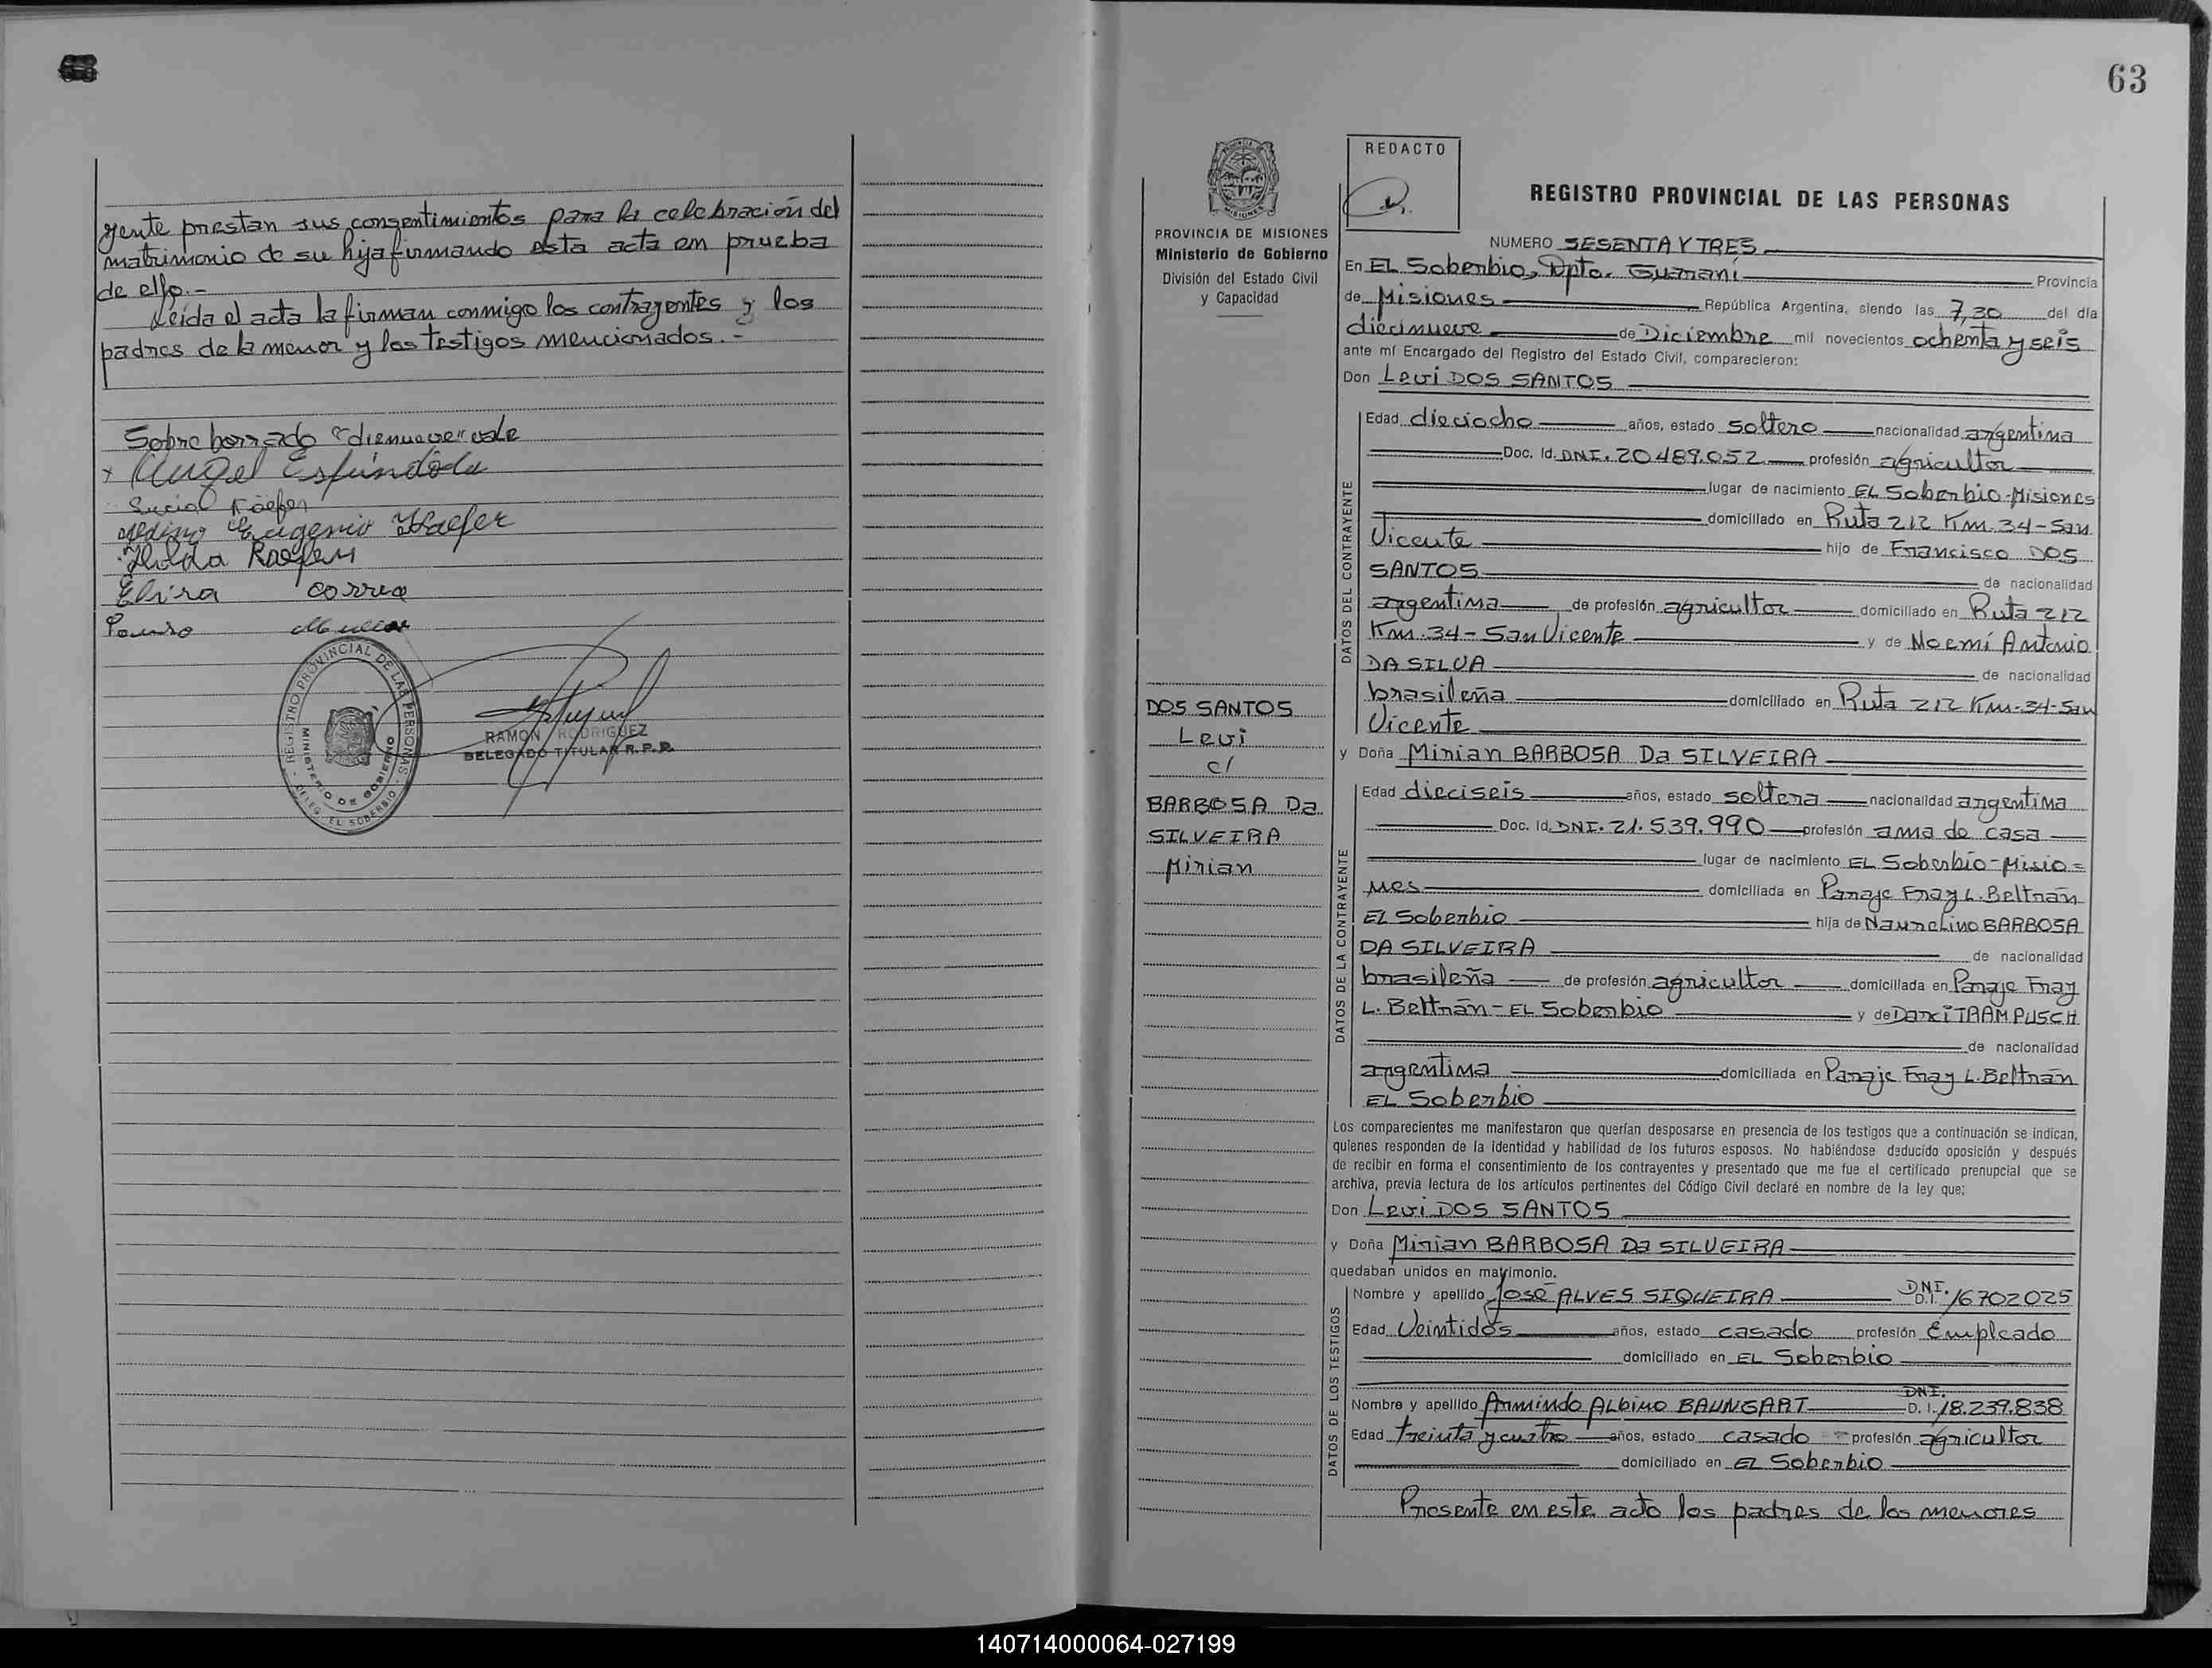 gente prestan sus consentimientos para la celebración del
matrimonio de su hija firmando esta acta en prueba
de ello.-
Leída el acta la firman conmigo los contrayentes y los
padres de la menor y los testigos mencionados.-
Sobre borrado "dienueve" vale
x Angel Espíndola
Kaefer
Eugenio Kaefer
Hilda Kaefer
Elira correa
REGISTRO PROVINCIAL DE LAS PERSONAS
MINISTERIO DE GOBIERNO
DELEG. EL SOBERBIO
RAMON RODRIGUEZ
DELEGADO TITULAR R.P.P.
63
PROVINCIA DE MISIONES
Ministerio de Gobierno
División del Estado Civil
y Capacidad
DOS SANTOS
Levi
c/
BARBOSA Da
SILVEIRA
Mirian
REDACTO
REGISTRO PROVINCIAL DE LAS PERSONAS
NUMERO SESENTA Y TRES
En EL Soberbio, Dpto. Guaraní Provincia
de Misiones República Argentina, siendo las 7,30 del día
diecinueve de Diciembre mil novecientos ochenta y seis
ante mí Encargado del Registro del Estado Civil, comparecieron:
Don Levi DOS SANTOS
DATOS DEL CONTRAYENTE
Edad dieciocho años, estado soltero nacionalidad argentina
Doc. Id. DNI. 20.489.052 profesión agricultor
lugar de nacimiento EL Soberbio-Misiones
domiciliado en Ruta 212 Km.34-San
Vicente hijo de Francisco DOS
SANTOS de nacionalidad
argentina de profesión agricultor domiciliado en Ruta 212
Km.34-San Vicente y de Noemí Antonio
DA SILVA de nacionalidad
brasileña domiciliado en Ruta 212 Km-34-San
Vicente
y Doña Mirian BARBOSA Da SILVEIRA
DATOS DE LA CONTRAYENTE
Edad dieciseis años, estado soltera nacionalidad argentina
Doc. Id. DNI. 21.539.990 profesión ama de casa
lugar de nacimiento EL Soberbio-Misio=
nes domiciliada en Paraje Fray L. Beltrán
EL Soberbio hija de Naurelino BARBOSA
DA SILVEIRA de nacionalidad
brasileña de profesión agricultor domiciliada en Paraje Fray
L. Beltrán-EL Soberbio y de Darci TRAMPUSCH
de nacionalidad
argentina domiciliada en Paraje Fray L. Beltrán
EL Soberbio
Los comparecientes me manifestaron que querían desposarse en presencia de los testigos que a continuación se indican,
quienes responden de la identidad y habilidad de los futuros esposos. No habiéndose deducido oposición y después
de recibir en forma el consentimiento de los contrayentes y presentado que me fue el certificado prenupcial que se
archiva, previa lectura de los artículos pertinentes del Código Civil declaré en nombre de la ley que;
Don Levi DOS SANTOS
y Doña Mirian BARBOSA Da SILVEIRA
quedaban unidos en matrimonio.
DATOS DE LOS TESTIGOS
Nombre y apellido José ALVES SIQUEIRA DNI. D.I. 16702025
Edad Veintidós años, estado casado profesión Empleado
domiciliado en EL Soberbio
Nombre y apellido Armindo ALbino BAUNGART DNI. D.I. 18.239.838
Edad treinta y cuatro años, estado casado profesión agricultor
domiciliado en EL Soberbio
Presente en este acto los padres de los menores
140714000064-027199